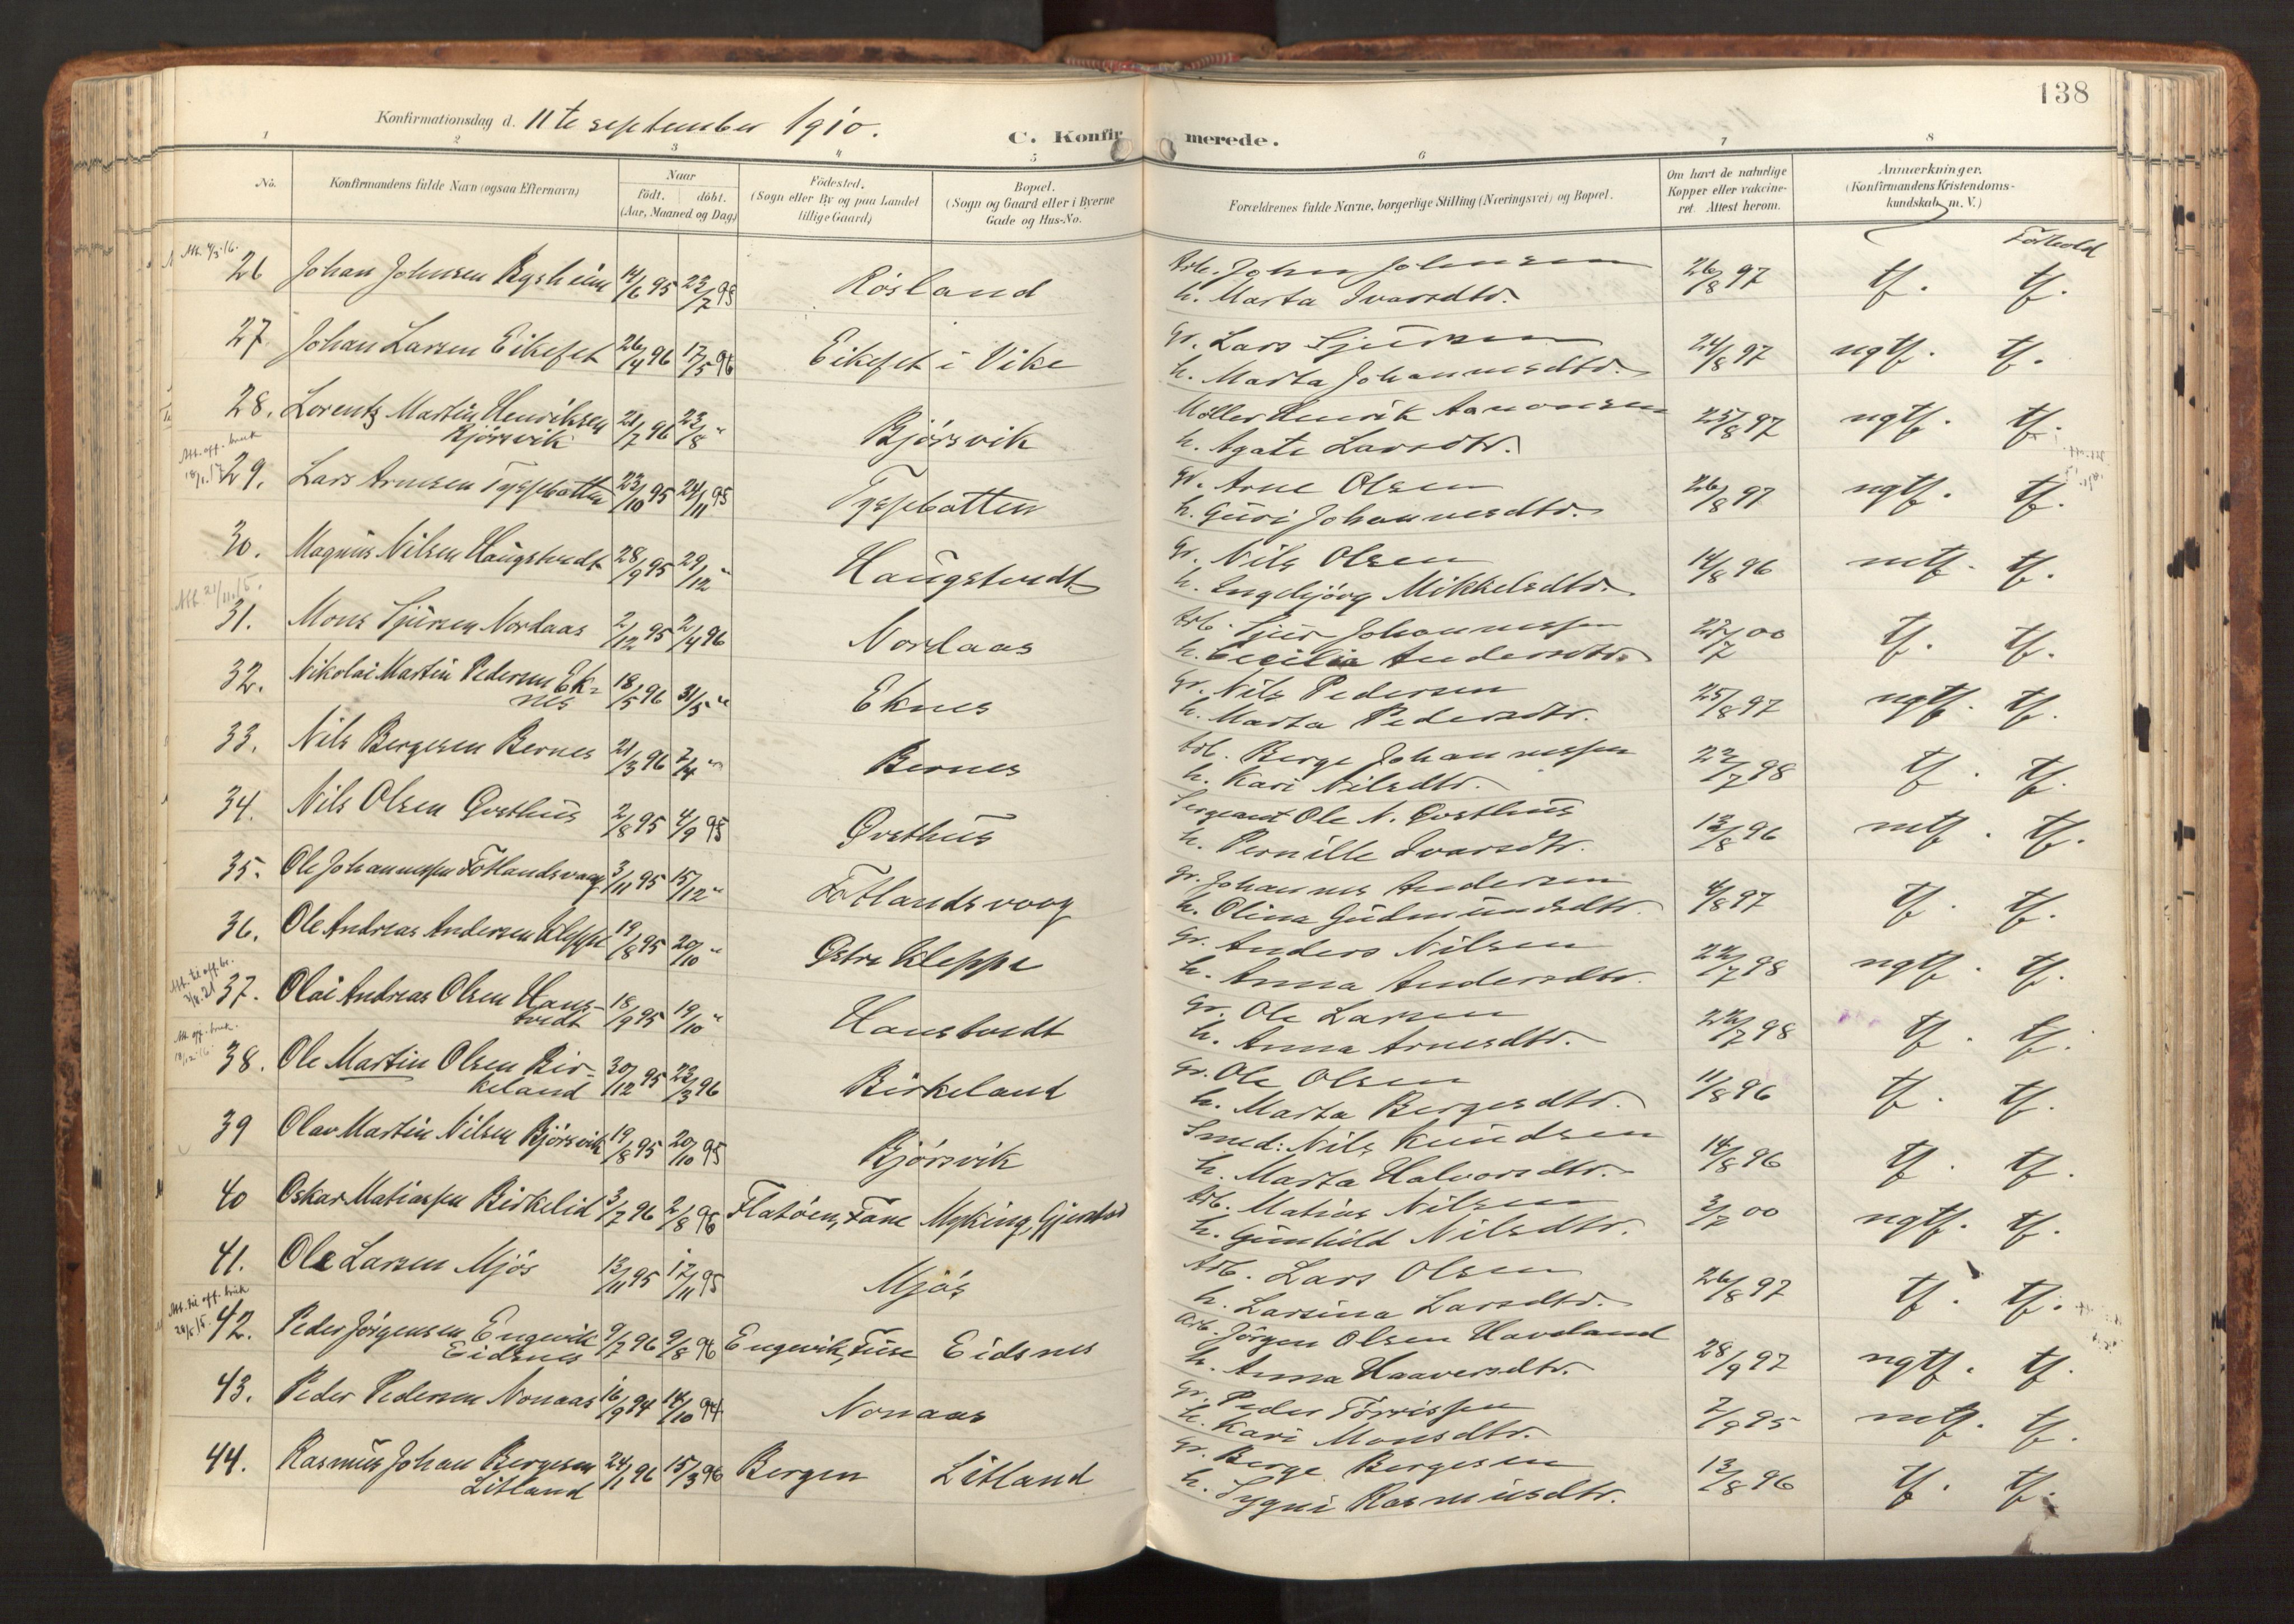 138
Konfirmationsdag d. 11te september 1910.
C. Konfirmerede.
1 2 3 4 5 6 7 8
No. Konfirmandens fulde Navn (ogsaa Efternavn) Naar født. døbt. (Aar, Maaned og Dag) Fødested. (Sogn eller By og paa Landet tillige Gaard) Bopæl. (Sogn og Gaard eller i Byerne Gade og Hus-No. Forældrenes fulde Navne, borgerlige Stilling (Næringsvei) og Bopæl. Om havt de naturlige Kopper eller vakcineret. Attest herom. Anmærkninger. (Konfirmandens Kristendomskundskab m. V.)
Forhold
26 Johan Johnsen Rysheim 14/6 95 23/7 95 Rösland Arb. John Johnsen 26/8 97 tf. tf.
h. Marta Ivarsdtr.
27 Johan Larsen Eikefet 26/4 96 17/5 96 Eikefet i Vike Gr. Lars Sjursen 24/8 97 ngtf. tf.
h. Marta Johannesdtr.
28. Lorentz Martin Henriksen 21/7 96 23/8 " Bjórsvik Möller Henrik Aanonsen 25/8 97 ngtf. tf.
Bjórsvik h. Agate Larsdtr.
29. Lars Arnesen Tyssebotten 23/10 95 24/11 95 Tyssebotten Gr. Arne Olsen 26/8 97 ngtf. tf.
h. Guri Johannesdtr.
30. Magnus Nilsen Haugstvedt 28/9 95 29/12 " Haugstvedt Gr. Nils Olsen 14/8 96 mtf. tf.
h. Engebjörg Mikkelsdtr.
31. Mons Sjursen Nordaas 2/12 95 2/4 96 Nordaas Arb. Sjur Johannessen 27/7 00 tf. tf.
h. Cecilia Andersdtr.
32. Nikolai Martin Pedersen Ek= 18/5 96 31/5 " Eknes Gr. Nils Pedersen 25/8 97 ngtf. tf.
nes h. Marta Pedersdtr.
33. Nils Bergesen Bernes 21/3 96 7/4 " Bernes Arb. Berge Johannessen 22/7 98 tf. tf.
h. Kari Nilsdtr.
34. Nils Olsen Qvsthus 2/8 95 4/9 95 Qvsthus Sergeant Ole N. Qvsthus 13/8 96 mtf. tf.
h. Pernille Ivarsdtr.
35. Ole Johannessen Fotlandsvaag 3/11 95 15/12 " Fotlandsvaag Gr. Johannes Andersen 4/8 97 tf. tf.
h. Olina Gudmundsdtr.
36. Ole Andreas Andersen Kleppe 19/8 95 20/10 " Östre Kleppe Gr. Anders Nilsen 22/7 98 ngtf. tf.
h. Anna Andersdtr.
37. Olai Andreas Olsen Hans- 18/9 95 19/10 " Hanstvedt Gr. Ole Larsen 22/7 98 tf. tf.
tvedt h. Anna Arnesdtr.
38. Ole Martin Olsen Bir- 30/12 95 23/3 96 Birkeland Gr. Ole Olsen 11/8 96 tf. tf.
keland h. Marta Bergesdtr.
39 Olav Martin Nilsen Bjórsvik 19/8 95 20/10 95 Bjórsvik Smed: Nils Knudsen 14/8 96 tf. tf.
h. Marta Halvorsdtr.
40 Oskar Matiassen Birkelid 3/7 96 2/8 96 Flatöen, Fane Myking, Gjerstad Arb. Matias Nilsen 3/7 00 ngtf. tf.
h. Gunhild Nilsdtr.
41. Ole Larsen Mjös 13/11 95 17/11 95 Mjös Arb. Lars Olsen 26/8 97 tf. tf.
h. Larsina Larsdtr.
42. Peder Jörgensen Engevik 9/7 96 9/8 96 Engevik, Fuse Eidsnes Arb. Jörgen Olsen Havsland 28/9 97 ngtf. tf.
Eidsnes h. Anna Haaversdtr.
43. Peder Pedersen Nonaas 16/9 94 14/10 94 Nonaas Gr. Peder Törrissen 7/9 95 mtf. tf.
h. Kari Monsdtr.
44. Rasmus Johan Bergesen 24/1 96 15/3 96 Bergen Litland Gr. Berge Bergesen 13/8 96 tf. tf.
Litland h. Sygni Rasmusdtr.